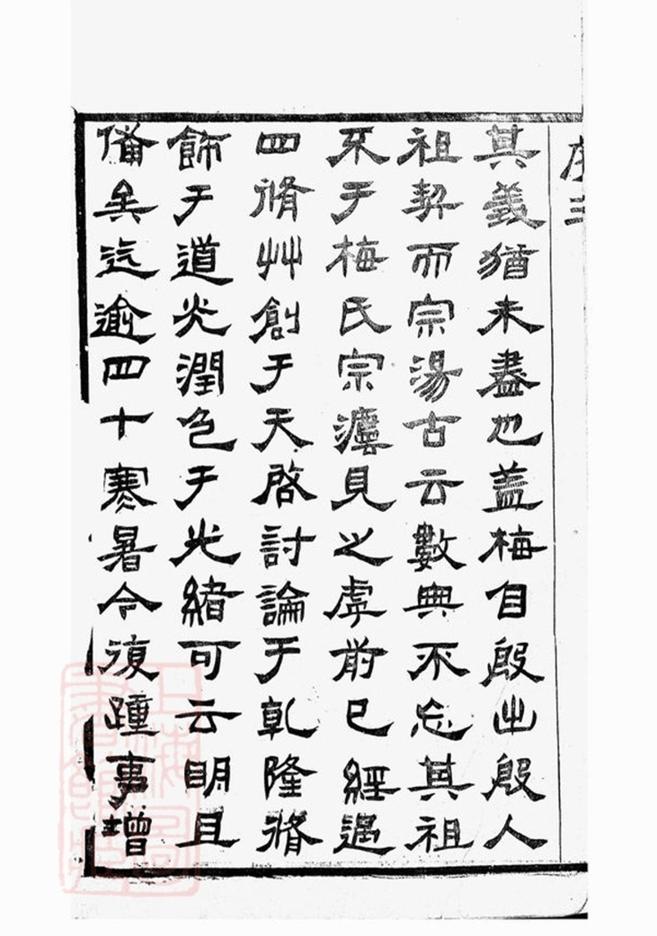 序三
其義猶未盡也蓋梅自殷出殷人
祖契而宗湯古云數典不忘其祖
不于梅氏宗灋見之虖前已經過
四脩艸創于天啓討論于乾隆脩
飾于道光潤色于光緒可云明且
備矣迄逾四十寒暑今復踵事增
上海圖書館藏